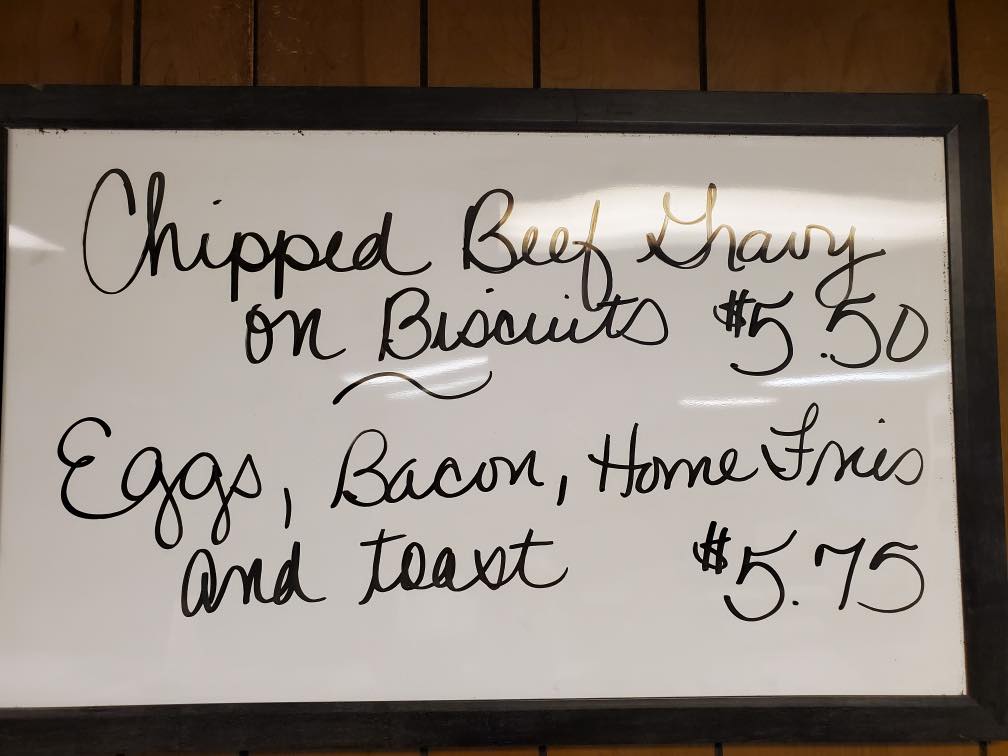 Chipped Beef Gravy
on Biscuits $5.50
Eggs, Bacon, Home Fries
and toast $5.75